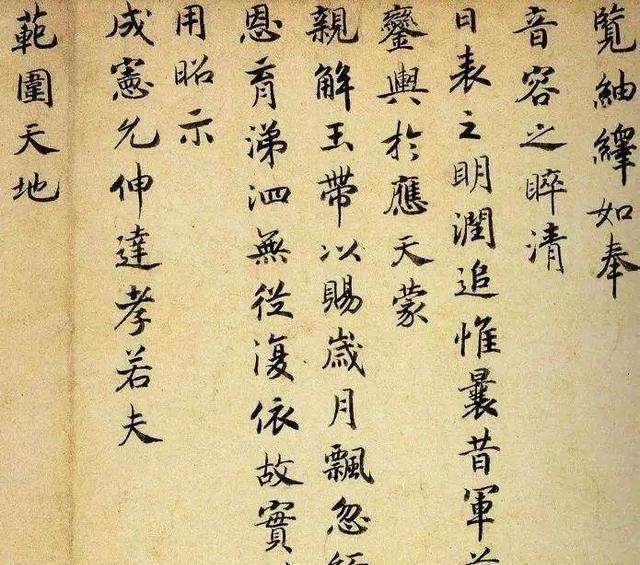 覧紬繹如奉
音容之睟清
日表之明潤追惟曩昔軍
鑾輿於應天蒙
親解玉帶以賜歲月飄忽
恩育涕泗無從復依故實
用昭示
成憲允伸達孝若夫
範圍天地